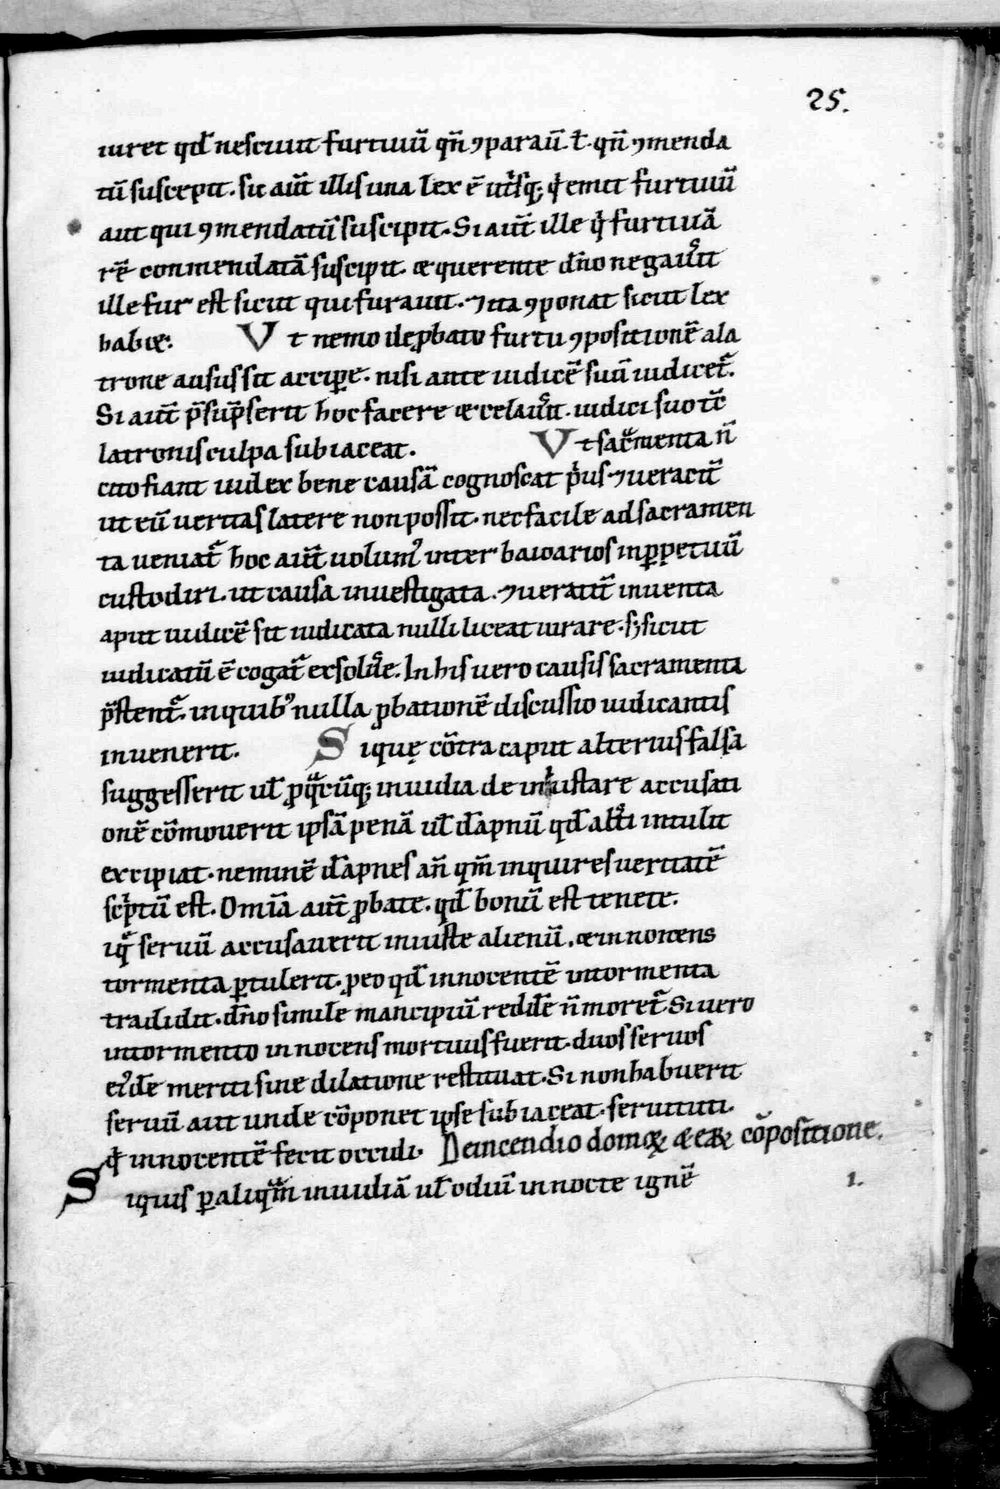 25.
iuret qd̄ nesciuit furtiuū qn̄ ꝯparauī. ł. qn̄ ꝯmenda
tū suscepit. sic aūt illis una lex ē ut͛sq; q̇ emit furtiuū
aut qui ꝯmendatū suscipit. Si aūt ille q̇ furtiuā
rē conmendatā suscipit. & querente dn̄o negau͛it
ille fur est sicut qui furauit. ⁊ ita ꝯponat sicut lex
habet. Ut nemo de ꝓbato furtu ꝯpositionē a la
trone ausus sit accipe. nisi ante iudicē suū iudicet᷑.
Si aūt p̄sūpserit hoc facere & celau͛it. iudici suo tc̄
latronis culpa subiaceat. Ut sac̄menta n̄
cito fiant iudex bene causā cognoscat p̍us ⁊ ueracit̄
ut eū ueritas latere non possit. nec facile ad sacramen
ta ueniat᷑ hoc aūt uolum᷒ inter baioarios in ꝑpetuū
custodiri. ut causa inuestigata. ⁊ ueracit̄ inuenta
aput iudicē sit iudicata nulli liceat iurare. sꝫ sicut
iudicatū ē cogat᷑ exsolu͛e. In his uero causis sacramenta
p̄stent᷑. in quib᷒ nulla ꝓbationē discussio iudicantis
inuenerit. Si quę cōtra caput alterius falsa
suggesserit ul̄ ꝓ q̄cūq; inuidia de iniustare accusati
onē cōmouerit ipsā penā ul̄ dāpnū qd̄ alt̄i intulit
excipiat. neminē dāpnes an̄ qm̄ inquires ueritatē
sc̍ptū est. Omīa aūt ꝓbate. qd̄ bonū est tenete.
iq̍ seruū accusauerit iniuste alienū. & innocens
tormenta ꝑtulerit. ꝓ eo qd̄ innocentē in tormenta
tradidit. dn̄o simile mancipiū redd͛e n̄ moret᷑. Si uero
in tormento innocens mortuus fuerit. duos seruos
ei᷒dē meriti sine dilatione restituat. Si non habuerit
seruū aut unde cōponet ipse subiaceat. seruituti.
q̍ innocentē fecit occidi. De incendio domoꝝ & eaꝝ cōpositione.
Siquis ꝑ aliqm̄ inuidiā ul̄ odiū in nocte ignē 1.